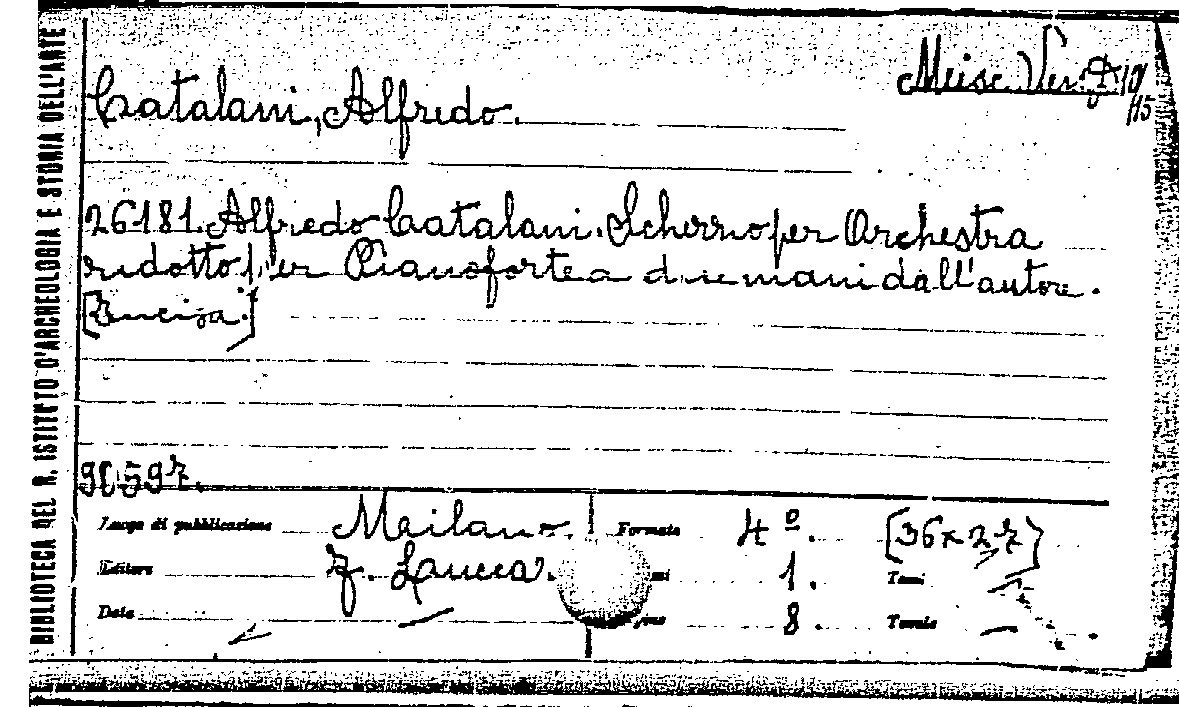 BIBLIOTECA DEL R. ISTITUTO D'ARCHEOLOGIA E STORIA DELL'ARTE
Misc. Ven.
Catalani, Alfredo.
26181. Alfredo Catalani. Scherzo per Orchestra
ridotto per Pianoforte a due mani dall'autore.
[Incisa.]
90597.
Luogo di pubblicazione Milano. Formato 4º. [36x27]
Editore F. Lucca. 1. Tomi —
Data — 8. Tavole —